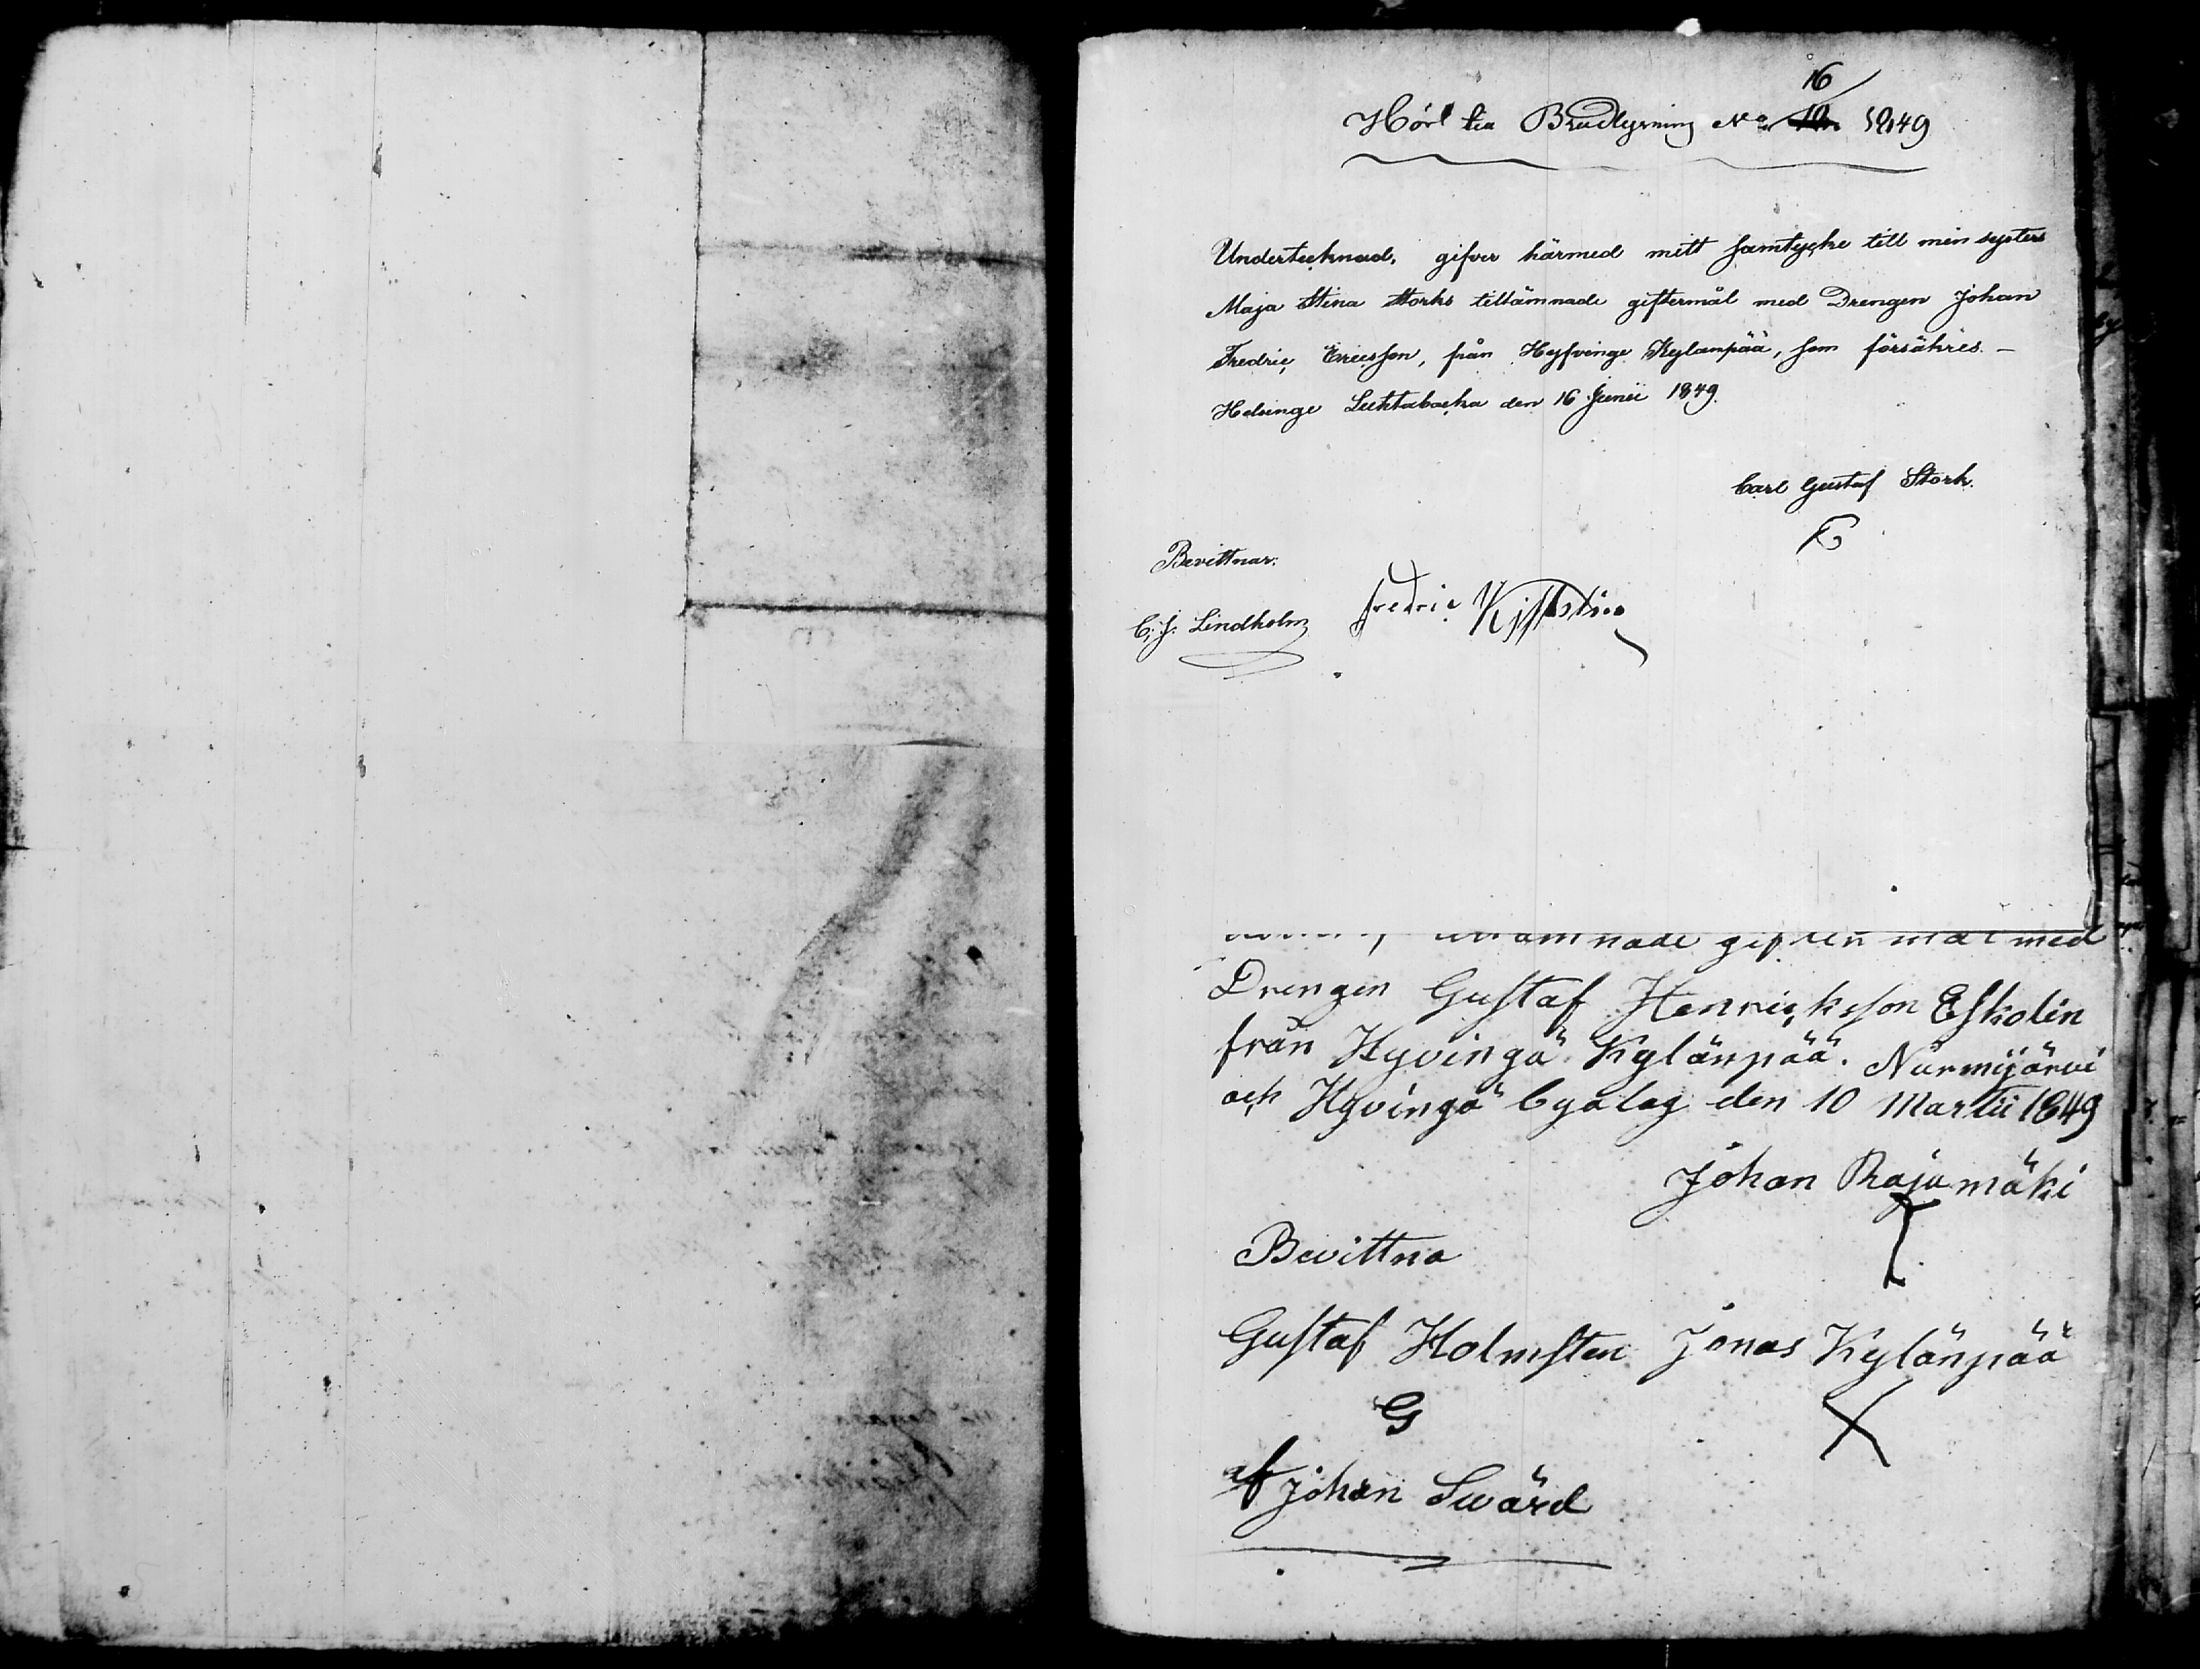 16
Hörl till Brudlysning No 12 1849
Undertecknad, gifver härmed mitt samtycke till min systers
Maja Stina Storks tillämnade giftermål med Drengen Johan
Fredric Ericsson, från Hyfvinge Kylänpää, som försäkres. —
Helsinge den 16 Junii 1849.
Carl Gustaf Stork.
Bevittnar:
C. J. Lindholm Fredric
nade giften mål med
Drengen Gustaf Henricksson Eskolin
från Hyvingä Kylänpää. Nurmijärvi
och Hyvingä byalag den 10 Martii 1849
Johan Rajamäki
Bevittna
Gustaf Holmsten Jonas Kylänpää
G X
af Johan Swärd